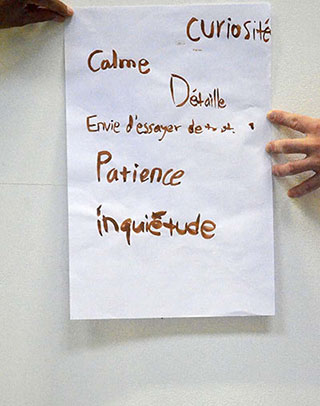 curiosité
Calme
Détaille
Envie d'essayer de
Patience
inquiétude